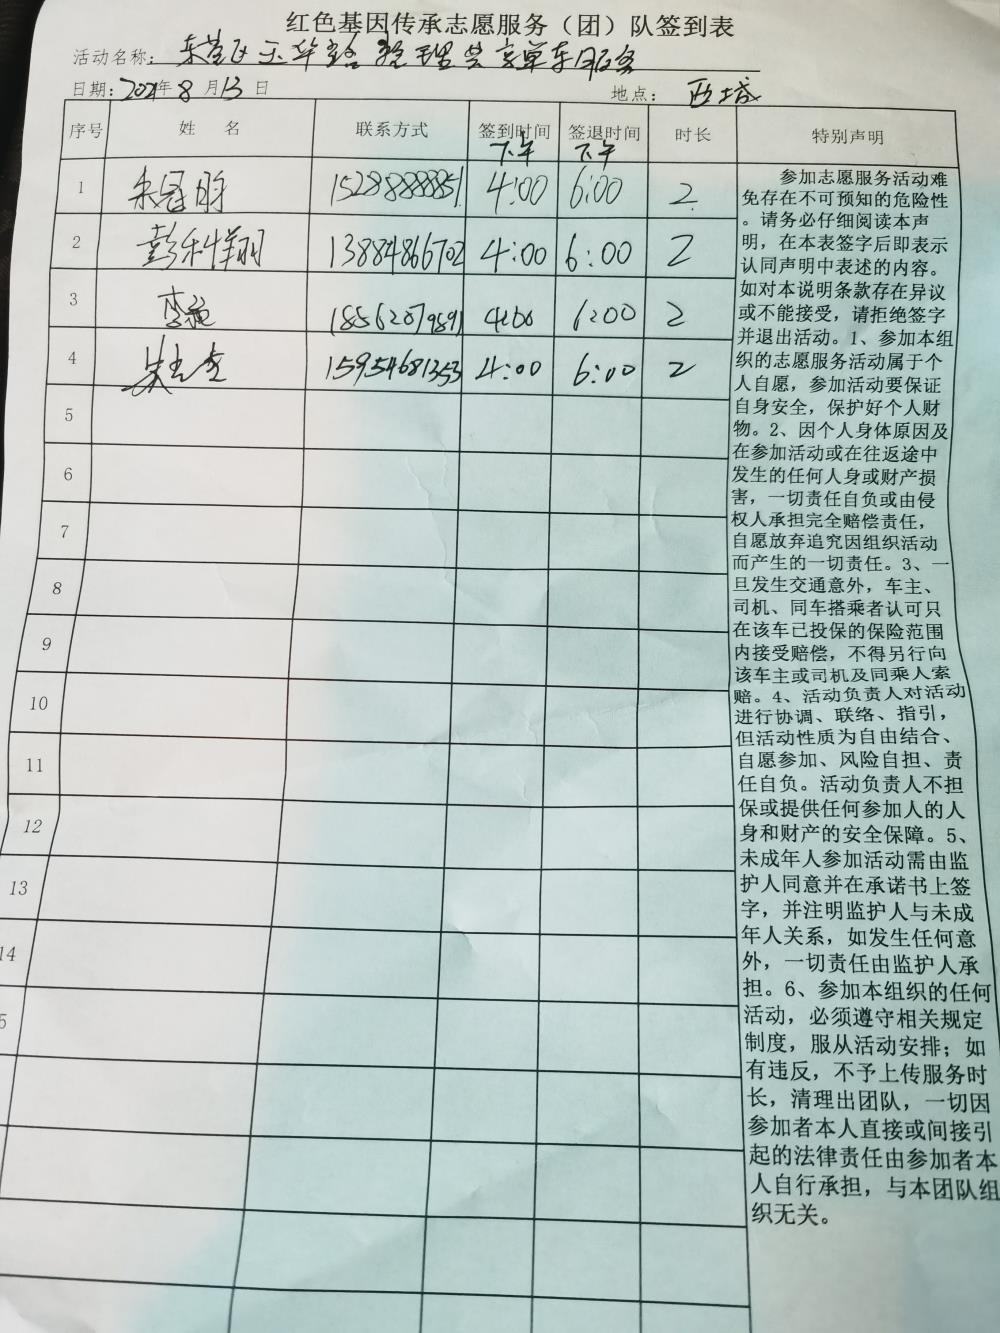 红色基因传承志愿服务（团）队签到表
活动名称: 整理共享单车服务
日期: 2021年8月13日 地点: 西城
序号 姓 名 联系方式 签到时间 签退时间 时长 特别声明
下午 下午
1 15288888851 4:00 6:00 2
2 彭乐样羽 13884866702 4:00 6:00 2
3 18562079891 4:00 6:00 2
4 15954681353 4:00 6:00 2
5
6
7
8
9
10
11
12
13
14
5
参加志愿服务活动难
免存在不可预知的危险性
。请务必仔细阅读本声
明，在本表签字后即表示
认同声明中表述的内容。
如对本说明条款存在异议
或不能接受，请拒绝签字
并退出活动。1、参加本组
织的志愿服务活动属于个
人自愿，参加活动要保证
自身安全，保护好个人财
物。2、因个人身体原因及
在参加活动或在往返途中
发生的任何人身或财产损
害，一切责任自负或由侵
权人承担完全赔偿责任，
自愿放弃追究因组织活动
而产生的一切责任。3、一
旦发生交通意外，车主、
司机、同车搭乘者认可只
在该车已投保的保险范围
内接受赔偿，不得另行向
该车主或司机及同乘人索
赔。4、活动负责人对活动
进行协调、联络、指引，
但活动性质为自由结合、
自愿参加、风险自担、责
任自负。活动负责人不担
保或提供任何参加人的人
身和财产的安全保障。5、
未成年人参加活动需由监
护人同意并在承诺书上签
字，并注明监护人与未成
年人关系，如发生任何意
外，一切责任由监护人承
担。6、参加本组织的任何
活动，必须遵守相关规定
制度，服从活动安排；如
有违反，不予上传服务时
长，清理出团队，一切因
参加者本人直接或间接引
起的法律责任由参加者本
人自行承担，与本团队组
织无关。